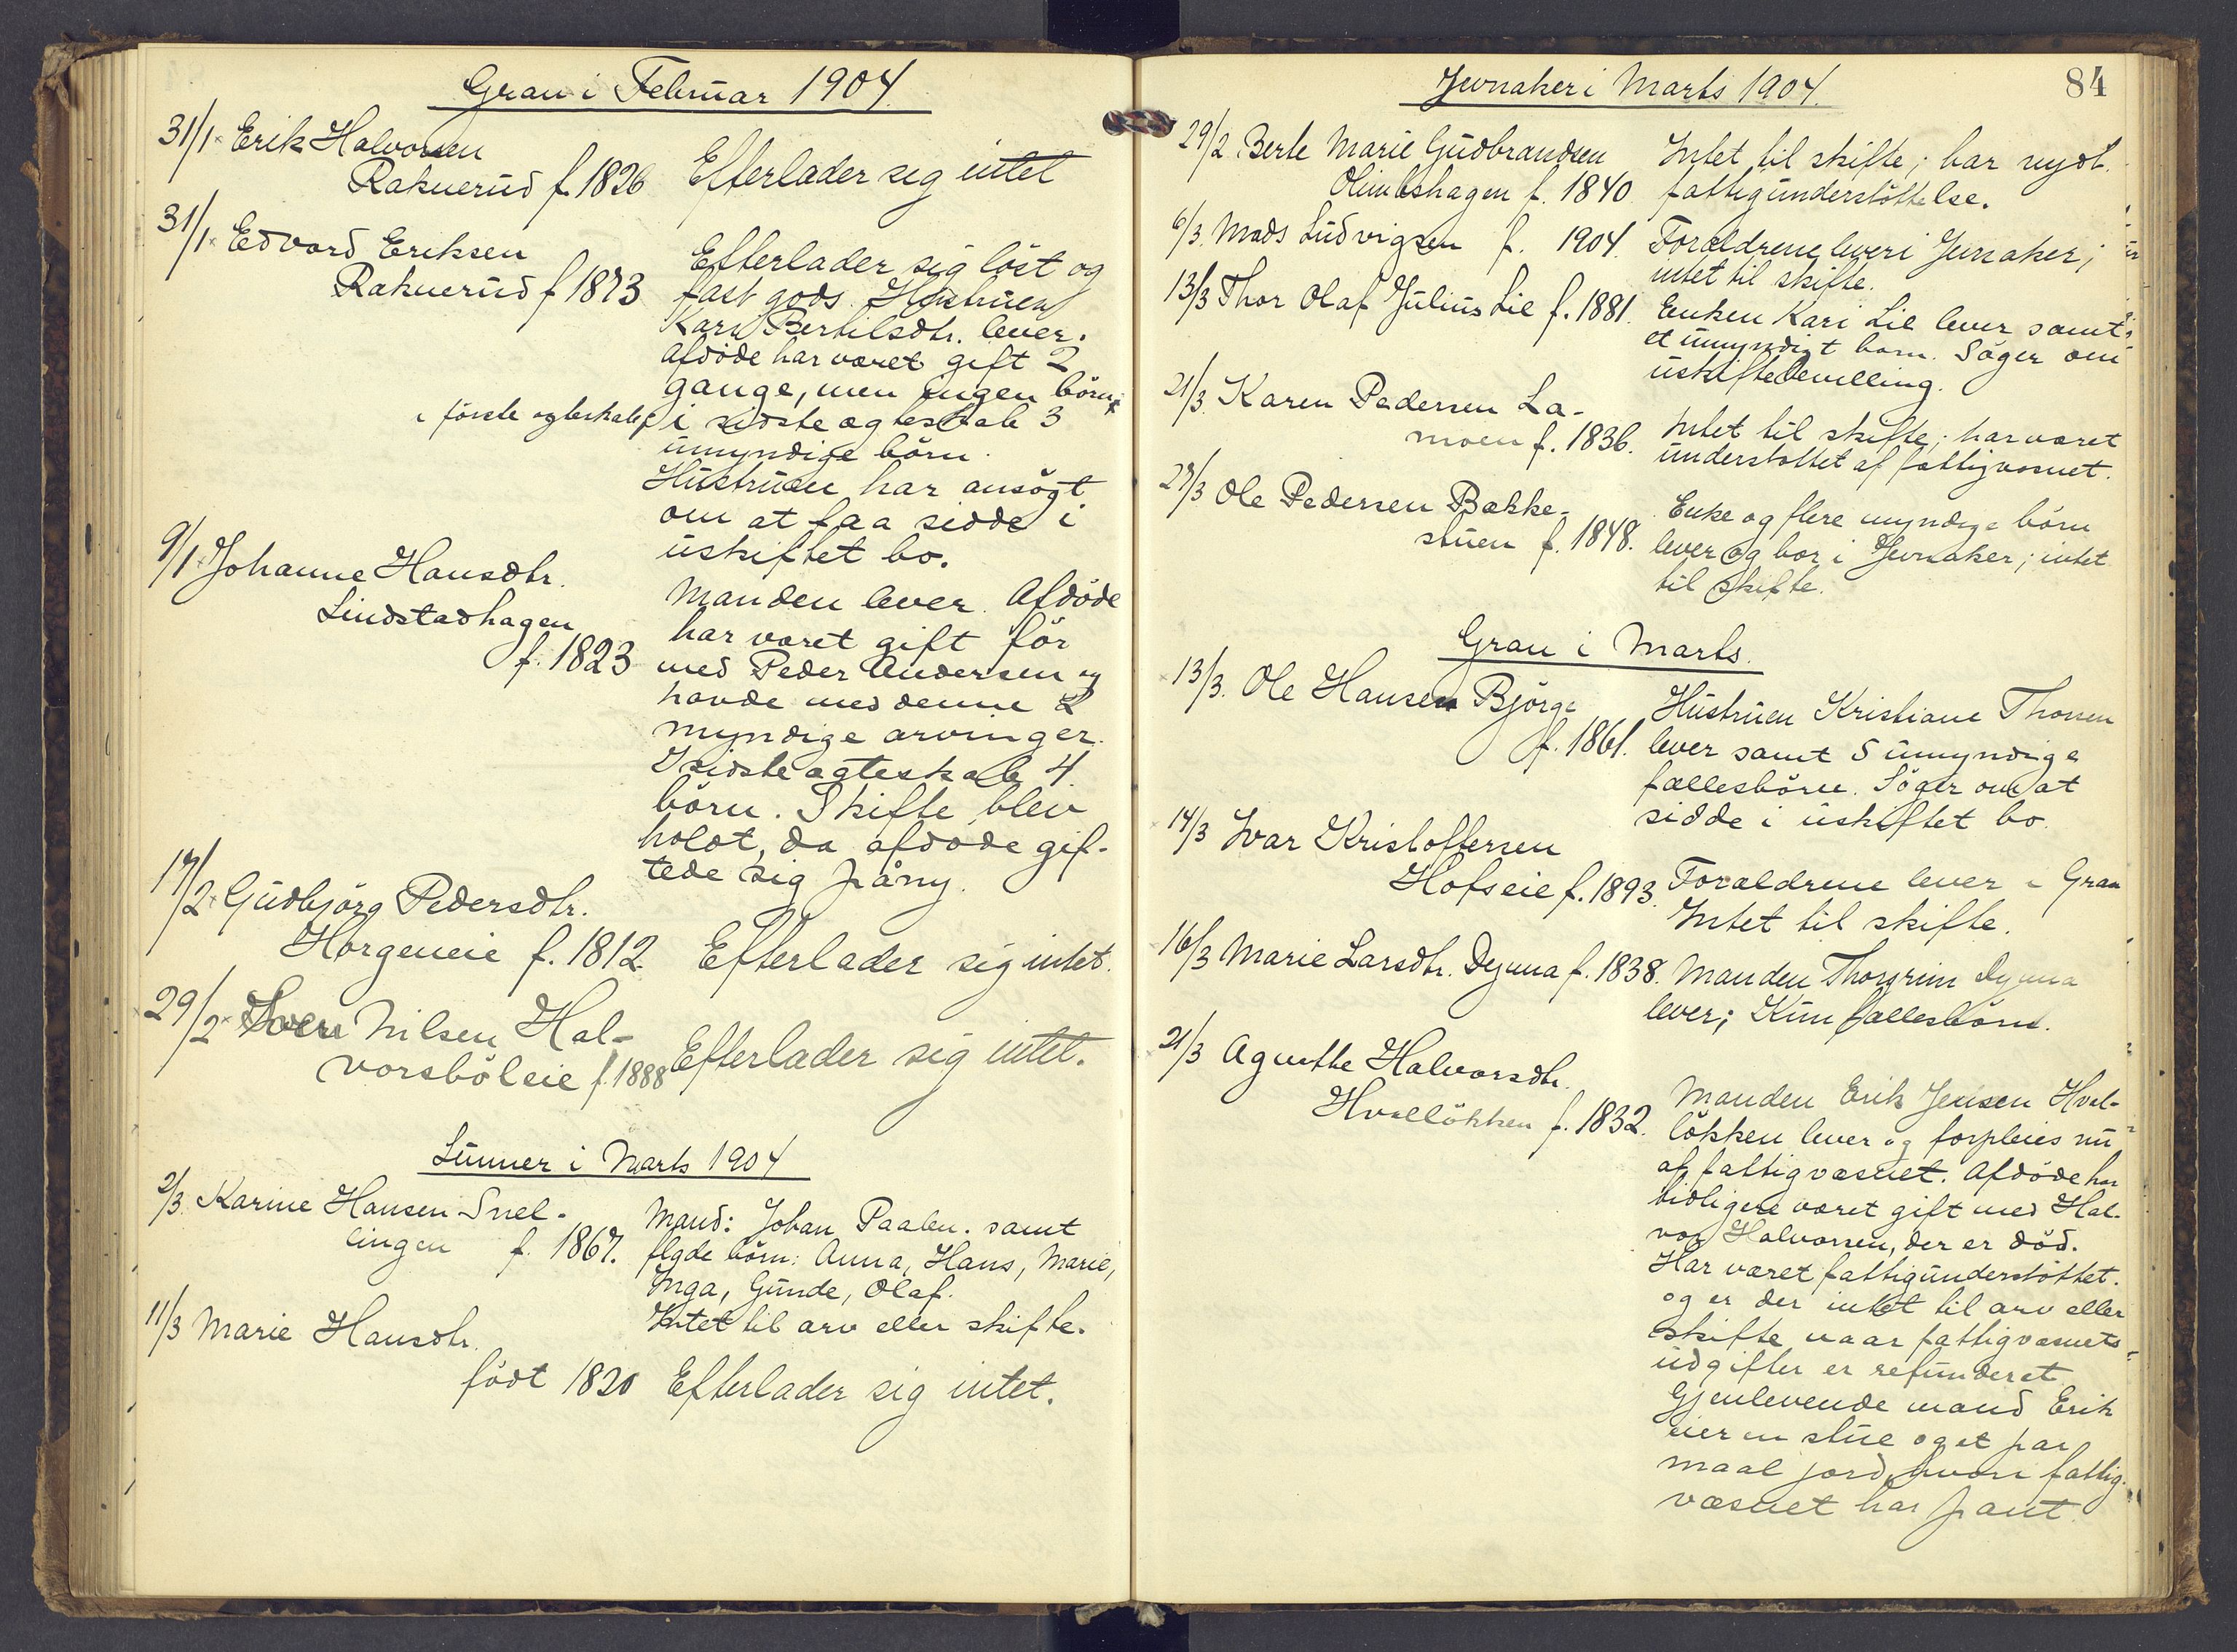 Gran i Februar 1904.
31/1 Erik Halvorsen
Raknerud f. 1826 Efterlader sig intet
31/1 Edvard Eriksen
Raknerud f 1873 Efterlader sig löst og
fast gods. Hustruen
Kari Bertilsdtr. lever.
Afdöde har været gift 2
gange, men ingen börn
i förste ægteskab, i sidste ægteskab 3
umyndige börn.
Hustruen har ansögt
om at faa sidde i
uskiftet bo.
9/1 Johanne Hansdtr.
Lindstadhagen
f. 1823
Manden lever. Afdöde
har været gift för
med Peder Andersen og
havde med denne 2
myndige arvinger.
I sidste ægteskab 4
börn. Skifte blev
holdt, da afdöde gif-
tede sig påny.
17/2 Gudbjörg Pedersdtr.
Horgeneie f. 1812. Efterlader sig intet.
29/2 Nilsen Hal-
vorsböleie f. 1888 Efterlader sig intet.
Lunner i Marts 1904
2/3 Karine Hansen Snel-
lingen f. 1867.
Mand: Johan Paalsen. samt
flgde börn: Anna, Hans, Marie,
Inga, Gunde, Olaf.
Intet til arv eller skifte.
11/3 Marie Hansdtr.
födt 1820 Efterlader sig intet.
84
Jevnaker i Marts 1904.
29/2 Berte Marie Gudbrandsen
f. 1840.
Intet til skifte; har nydt
fattigunderstöttelse.
6/3. Mads Ludvigsen f. 1904. Forældrene lever i Jevnaker;
intet til skifte.
13/3 Thor Olaf Julius Lie f. 1881. Enken Kari Lie lever samt
et umyndigt barn. Söger om
uskiftebevilling.
21/3 Karen Pedersen La-
moen f. 1836.
Intet til skifte; har været
understöttet af fattigvæsnet.
27/3 Ole Pedersen Bakke-
stuen f. 1848.
Enke og flere myndige börn
lever og bor i Jevnaker; intet
til skifte.
Gran i Marts.
13/3. Ole Hansen Björge
f. 1861.
Hustruen Kristiane Thorsen
lever samt 5 umyndige
fællesbörn. Söger om at
sidde i uskiftet bo.
14/3 Ivar Kristoffersen
Hofseie f. 1893. Forældrene lever i Gran
Intet til skifte.
16/3 Marie Larsdtr. Dynna f. 1838. Manden Thorgrim Dynna
lever; Kun fællesbörn.
21/3 Agnethe Halvorsdtr.
Hvallökken f. 1832.
Manden Erik Jensen Hval-
lökken lever og forpleies nu
af fattigvæsnet. Afdöde har
tidligere været gift med Hal-
vor Halvorsen, der er död.
Har været fattigunderstöttet.
og er der intet til arv eller
skifte naar fattigvæsnets
udgifter er refunderet.
Gjenlevende mand Erik
eier en stue og et par
maal jord, hvori fattig-
væsnet har pant.